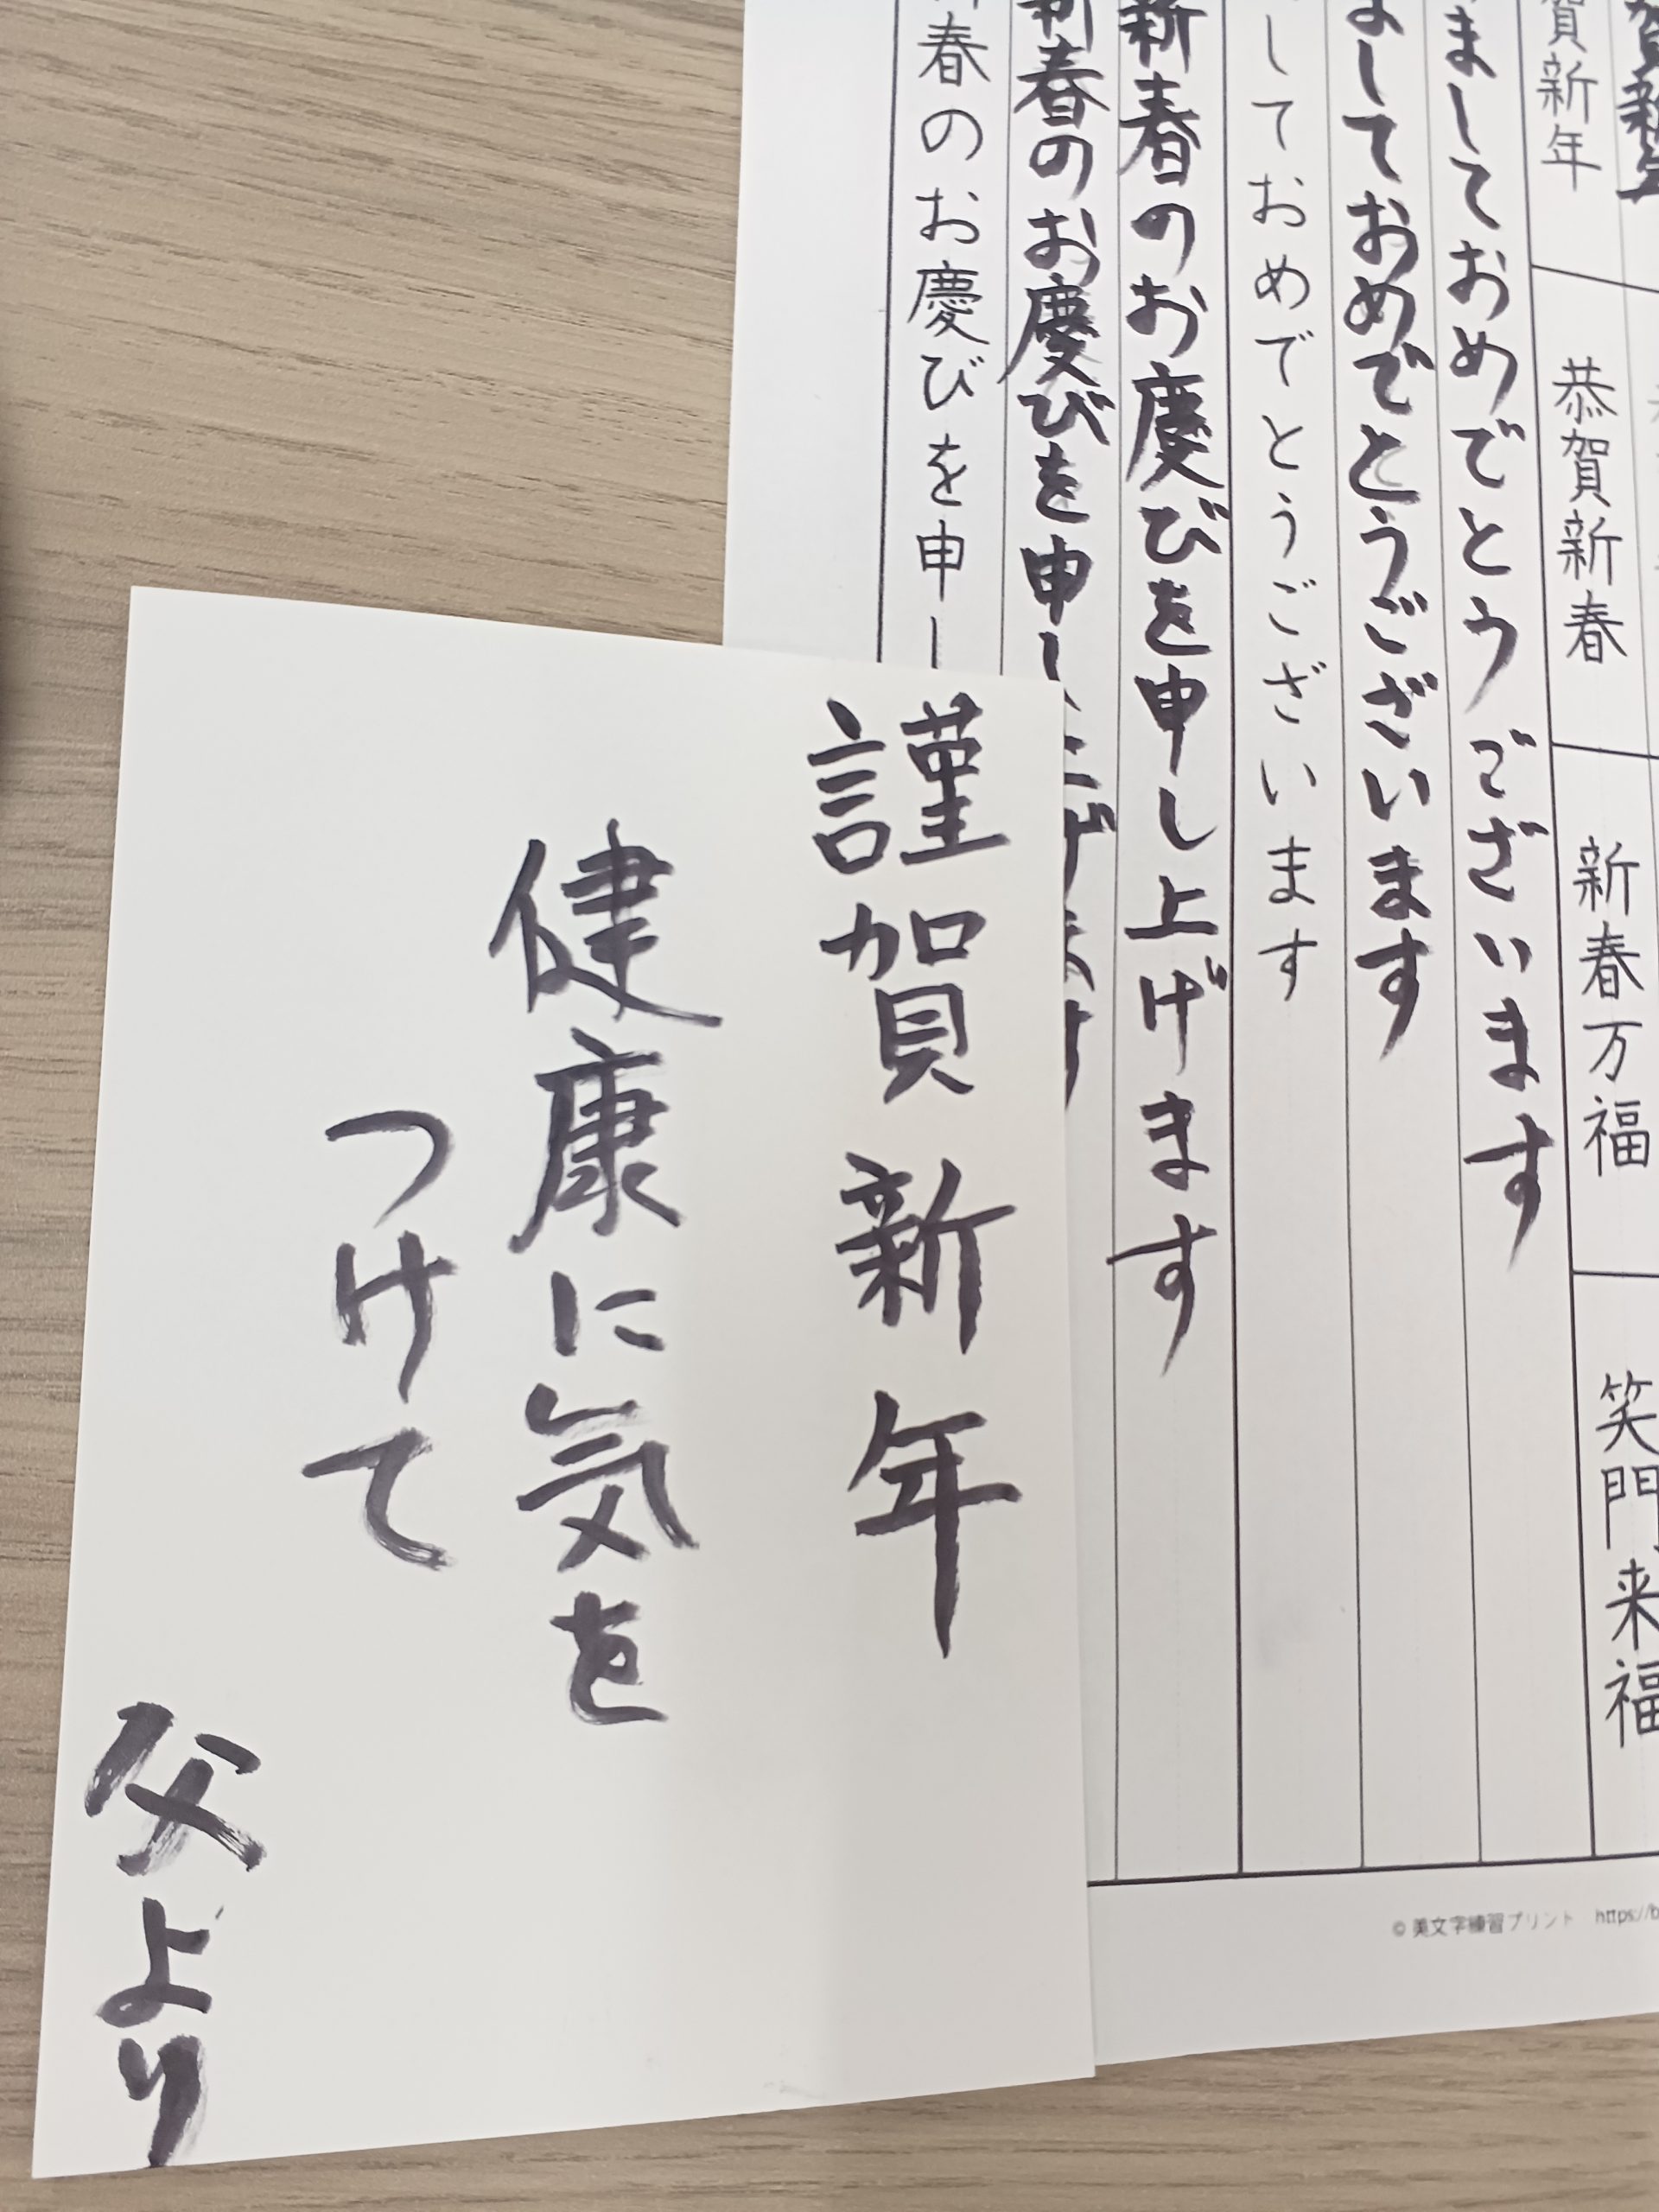 謹賀新年
健康に気を
つけて
父より
賀新年
恭賀新春
新春万福
笑門来福
ましておめでとうございます
ましておめでとうございます
しておめでとうございます
新春のお慶びを申し上げます
新春のお慶びを申し上げます
春のお慶びを申し
© 美文字練習プリント https://b